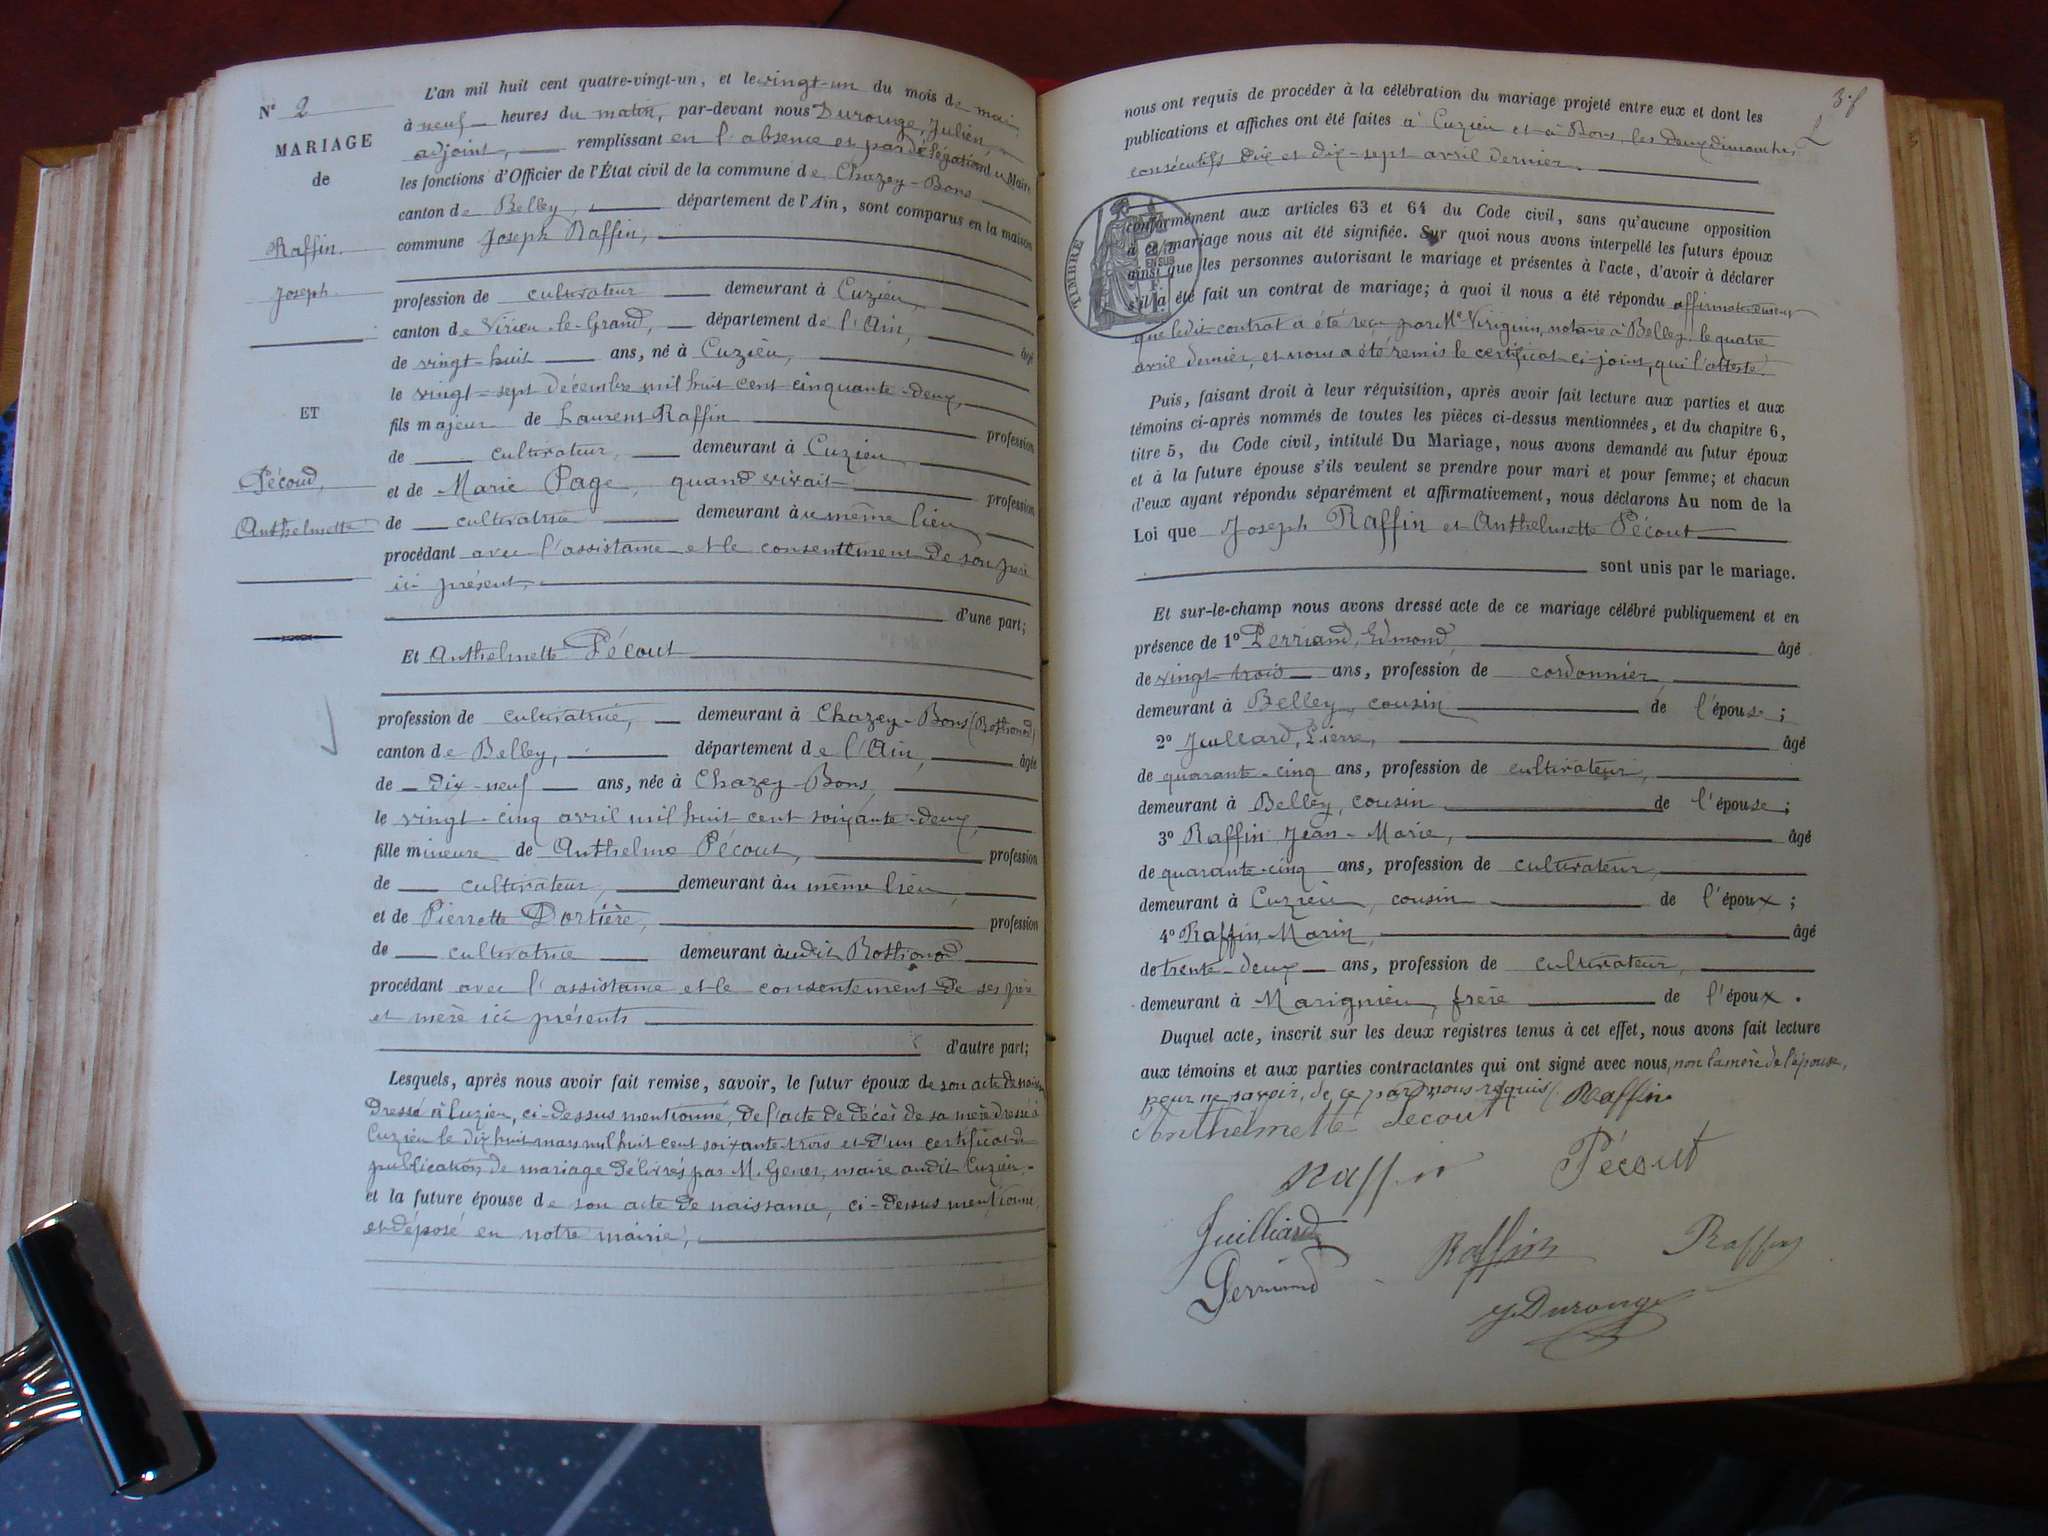 N° 2
MARIAGE
de
Raffin
Joseph
ET
Pécoud,
Anthelmette
L'an mil huit cent quatre-vingt-un, et le vingt-un du mois de mai
à neuf heures du matin, par-devant nous Durouge, Julien,
adjoint, remplissant en l'absence et par délégation du Maire
les fonctions d'Officier de l'État civil de la commune de Chazey-Bons
canton de Belley, département de l'Ain, sont comparus en la maison
commune Joseph Raffin,
profession de cultivateur demeurant à Cuzieu,
canton de Virieu-le-Grand, département de l'Ain, âgé
de vingt-huit ans, né à Cuzieu,
le vingt-sept décembre mil huit cent cinquante-deux,
fils majeur de Laurent Raffin profession
de cultivateur, demeurant à Cuzieu
et de Marie Page, quand vivait profession
de cultivatrice demeurant au même lieu
procédant avec l'assistance et le consentement de son père
ici présent,
d'une part;
Et Anthelmette Pécout
profession de cultivatrice, demeurant à Chazey-Bons (Rothonod)
canton de Belley, département de l'Ain, âgée
de Dix-neuf ans, née à Chazey-Bons,
le vingt-cinq avril mil huit cent soixante-deux,
fille mineure de Anthelme Pécout, profession
de cultivateur, demeurant au même lieu,
et de Pierrette Dortière, profession
de cultivatrice demeurant audit Rothonod
procédant avec l'assistance et le consentement de ses père
et mère ici présents
d'autre part;
Lesquels, après nous avoir fait remise, savoir, le futur époux de son acte de naissance
Dressé à Cuzieu, ci-dessus mentionné, de l'acte de décès de sa mère dressé à
Cuzieu le dix huit mars mil huit cent soixante-trois et d'un certificat de
publication de mariage délivrés par M. maire audit Cuzieu,
et la future épouse de son acte de naissance, ci-dessus mentionné,
et déposé en notre mairie,
3.f
2
nous ont requis de procéder à la célébration du mariage projeté entre eux et dont les
publications et affiches ont été faites à Cuzieu et à Bons, les deux dimanches
consécutifs Dix et dix-sept avril dernier.
TIMBRE
conformément aux articles 63 et 64 du Code civil, sans qu'aucune opposition
à ce mariage nous ait été signifiée. Sur quoi nous avons interpellé les futurs époux
ainsi que les personnes autorisant le mariage et présentes à l'acte, d'avoir à déclarer
s'il a été fait un contrat de mariage; à quoi il nous a été répondu affirmativement
que ledit contrat a été reçu par Me notaire à Belley, le quatre
avril dernier, et nous a été remis le certificat ci-joint, qui l'atteste.
Puis, faisant droit à leur réquisition, après avoir fait lecture aux parties et aux
témoins ci-après nommés de toutes les pièces ci-dessus mentionnées, et du chapitre 6,
titre 5, du Code civil, intitulé Du Mariage, nous avons demandé au futur époux
et à la future épouse s'ils veulent se prendre pour mari et pour femme; et chacun
d'eux ayant répondu séparément et affirmativement, nous déclarons Au nom de la
Loi que Joseph Raffin et Anthelmette Pécout
sont unis par le mariage.
Et sur-le-champ nous avons dressé acte de ce mariage célébré publiquement et en
présence de 1° Perriand, Edmond, âgé
de vingt-trois ans, profession de cordonnier,
demeurant à Belley, cousin de l'épouse;
2° Juillard, Pierre, âgé
de quarante-cinq ans, profession de cultivateur,
demeurant à Belley, cousin de l'épouse;
3° Raffin Jean-Marie, âgé
de quarante-cinq ans, profession de cultivateur,
demeurant à Cuzieu, cousin de l'époux;
4° Raffin, Marin, âgé
de trente-deux ans, profession de cultivateur,
demeurant à Marignieu, frère de l'époux.
Duquel acte, inscrit sur les deux registres tenus à cet effet, nous avons fait lecture
aux témoins et aux parties contractantes qui ont signé avec nous, non la mère de l'épouse,
pour ne savoir, de ce par nous requis. Raffin
Anthelmette Pecout
Raffin Pécout
Juilliard Raffin Raffin
Perriand
J Durouge